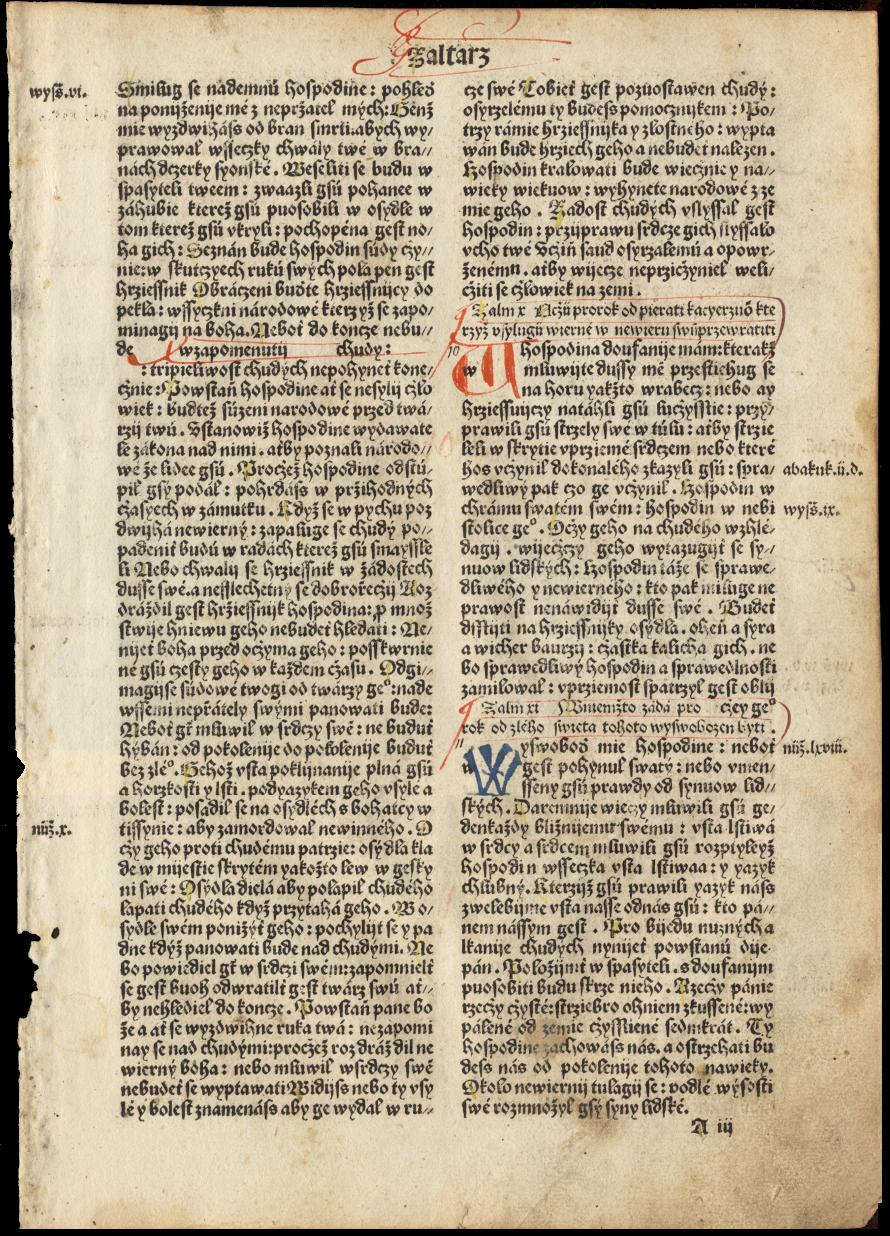 Zaltarz
wyss̃.vi.
Smilug se nademnú hospodine : pohleď
na poniženije mé z nepržatel mých: Genž
mie wyzdwihášs od bran smrti: abych wy//
prawowal wsseczky chwály twé w bra//
nách dczerky syonské . Weseliti se budu w
spasyteli tweem : zwaazli gsú pohanee w
záhubie kterež gsú puosobili w osydle w
tom kterež gsú vkryli : pochopena gest no//
ha gich : Seznán bude hospodin súdy czy//
nie: w skutczyech rukú swých polapen gest
hrziessnik Obráczeni buďte hrziessnijcy do
pekla : wssyczkni národowé kterzyž se zapo//
minagij na boha. Neboť do koncze nebu//
de w zapomenutij chudy :
: tripieliwost chudých nepohyneť kone//
cznie : Powstaň hospodine ať se nesylij czlo
wiek : budtež súzeni narodowé před twá//
rzij twú . Vstanowiž hospodine wydawate
le zákona nad nimi . atby poznali národo//
wé že lidee gsú . Proczež hospodine odstú//
pil gsy podál : pohrdáss w pržihodných
czasyech w zámutku . Když se w pychu poz
dwijhá newierný : zapaluge se chudý po//
padeniť budú w radách kterež gsú smaysle
li Nebo chwalij se hrziessnik w žádostech
dusse swé. a nesslechetny se dobrorzeczij Roz
dráždil gest hrziessnijk hospodina: ꝓ množ
stwije hniewu geho nebudeť hledati : Ne//
nijeť boha przed oczyma geho : posskwrnie
né gsú czesty geho w každém czasu . Odgi//
magij se súdowé twogi od twárzy ge°: nade
wssemi nepřátely swými panowati bude:
Neboť gt̃ mluwil w srdczy swé : ne buduť
hýbán : od pokolenije do pokolenije buduť
bez zlé°. Gehož vsta poklijnanije plná gsú
a horzkosti y lsti . pod yazykem geho vsyle a
bolest : posadil se na osydléch s bohatcy w
nuż̃.x.
tissynie : aby zamordowal newinného . O
czy geho proti chudému patrzie: osydla kla
de w mijestie skrytém yakožto lew w gesky
ni swé : Osydla dielá aby polapil chudého
lapati chudého když przytahá geho . W o//
sydle swém ponižýť geho : pochylijť se y pa
dne když panowati bude nad chudými. Ne
bo powiediel gt̃ w srdczi swém: zapomnielť
se gest buoh odwratilť gest twárz swú ať//
by nehlediel do koncze . Powstaň pane bo
že a ať se wyzdwihne ruka twá : nezapomi
nay se nad chudými: proczež rozdráždil ne
wierný bóha : nebo mluwil w srdczy swé
nebudeť se wyptawati Widijss nebo ty vsy
lé y bolest znamenáss aby ge wydal w ru//
cze swé Tobieť gest pozuostawen chudý :
osyrzelému ty budess pomocznijkem : Po//
trzy rámie hrziessnijka y zlostného : wypta
wán bude hrziech geho a nebudeť nalezen .
Hospodin kralowati bude wiecznie y na//
wieky wiekuow : wyhynete narodowé z ze
mie geho . Žadost chudých vslyssal gest
hospodin : przijprawu srdcze gich slyssalo
vcho twé Vcziň saud osyrzalému a opowr//
ženému . atby wijecze neprzicžyniel weli//
cžiti se czlowiek na zemi .
Zalm x Nežú prorok od pierati kacyerzuõ kte
rzyž vsylugú wierné w newieru swú przewratiti
10
W hospodina doufanije mám: kterakž
mluwijte dussy mé przestiehug se
na horu yakžto wrabecz: nebo ay
hrziessnijczy natáhli gsú lucžysstie : przy//
prawili gsú strzely swé w túlu : aťby strzie
leli w skrytie vprziemé srdczem nebo které
hos vczynil dokonalého zkazyli gsú : spra//
abakuk.ii.d.
wedliwý pak czo ge vczynil . Hospodin w
chrámu swatém swém : hospodin w nebi
wyss̃.ix.
stolice ge°. Oczy geho na chudého wzhlé//
dagij . wijeczky geho wytazugijť se sy//
nuow lidských : Hospodin táže se sprawe//
dliwého y newierného : kto pak miluge ne
prawost nenáwidijť dusse swé . Budeť
dsstijti na hrziessnijky osydla. oheň a syra
a wicher baurzij : cžastka kalicha gich . ne
bo sprawedliwý hospodin a sprawedlnosti
zamilowal : vprziemost spatrzyl gest oblij
Zalm xi Winiemžto žádá pro czey ge°
rok od zlého swieta tohoto wyswobozen byti .
11
Wyswoboď mie hospodine : neboť
nuż̃.lxviii.
gest pohynul swatý : nebo vmen//
sseny gsú prawdy od synuow lid//
ských . Daremnije wieczy mluwili gsú ge//
denkaždy bližnijemu swému : vsta lstiwá
w srdcy a srdcem mluwili gsú rozptyleyž
hospodin wsseczka vsta lstiwaa : y yazyk
chlubný . Kterzijž gsú prawili yazyk náss
zwelebijme vsta nasse od nás gsú : kto pá//
nem nássým gest . Pro bijedu nuzných a
lkanije chudých nynijeť powstanú dije//
pán . Položijmť w spasyteli . s doufanym
puosobiti budu skrze nieho . Rzeczy pánie
rzeczy czysté: strziebro ohniem zkussené: wy
pálené od zemie czysstiené sedmkrát . Ty
hospodine zachowáss nás. a ostrzehati bu
dess nás od pokolenije tohoto nawieky .
Okolo newiernij tulagij se : podlé wysosti
swé rozmnožyl gsy syny lidské.
A iij